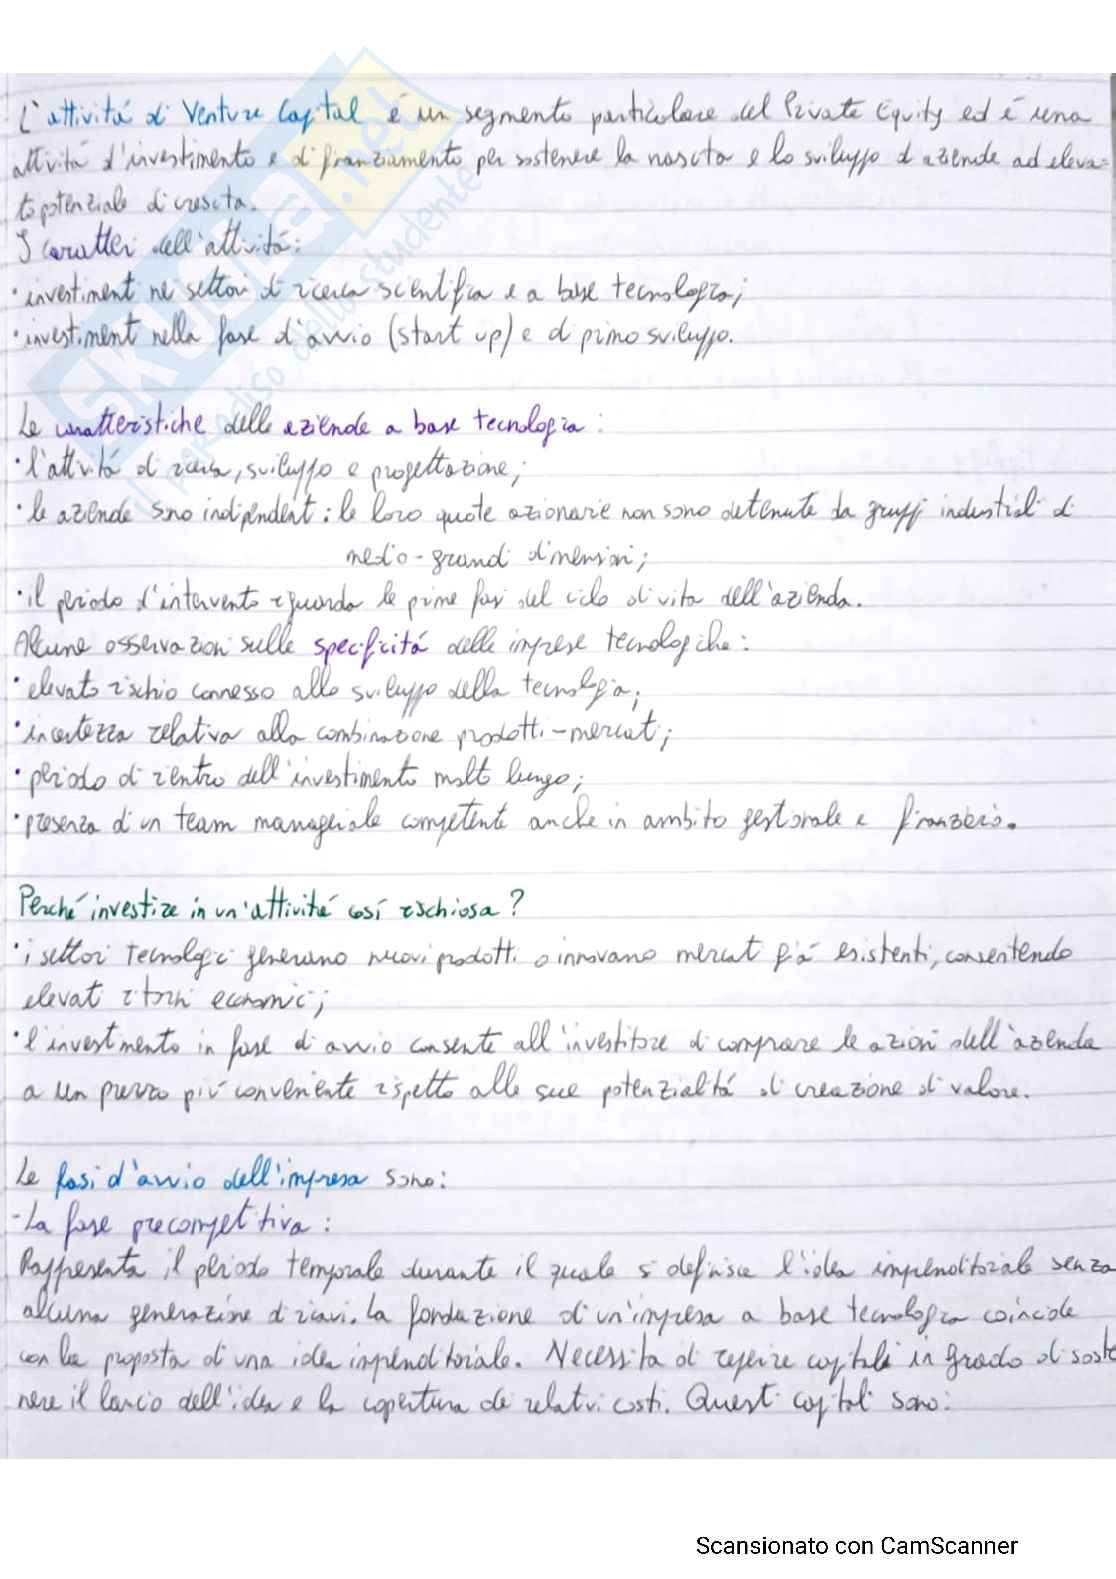 L'attivitá di Venture Capital é un segmento particolare del Private Equity ed é una
attivitá d'investimento e di finanziamento per sostenere la nascita e lo sviluppo di aziende ad eleva-
to potenziale di crescita.
I caratteri dell'attivitá:
• investimenti nei settori di ricerca scientifica e a base tecnologica;
• investimenti nella fase d'avvio (start up) e di primo sviluppo.
Le caratteristiche delle aziende a base tecnologica:
• l'attivitá di ricerca, sviluppo e progettazione;
• le aziende sono indipendenti: le loro quote azionarie non sono detenute da gruppi industriali di
medio-grandi dimensioni;
• il periodo d'intervento riguarda le prime fasi del ciclo di vita dell'azienda.
Alcune osservazioni sulle specificitá delle imprese tecnologiche:
• elevato rischio connesso allo sviluppo della tecnologia;
• incertezza relativa alla combinazione prodotti-mercati;
• periodo di rientro dell'investimento molto lungo;
• presenza di un team manageriale competente anche in ambito gestionale e finanziario.
Perché investire in un'attivitá cosí rischiosa?
• i settori tecnologici generano nuovi prodotti o innovano mercati giá esistenti, consentendo
elevati ritorni economici;
• l'investimento in fase di avvio consente all'investitore di comprare le azioni dell'azienda
a un prezzo piú conveniente rispetto alle sue potenzialitá di creazione di valore.
Le fasi d'avvio dell'impresa sono:
- La fase precompetitiva:
Rappresenta il periodo temporale durante il quale si definisce l'idea imprenditoriale senza
alcuna generazione di ricavi. La fondazione di un'impresa a base tecnologica coincide
con la proposta di una idea imprenditoriale. Necessita di reperire capitali in grado di soste
nere il lancio dell'idea e la copertura dei relativi costi. Questi capitali sono:
SKUOLA.net
il paradiso dello studente
Scansionato con CamScanner